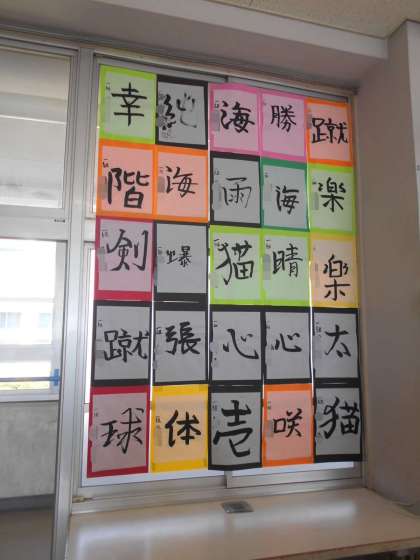 幸 純 海 勝 蹴
階 海 雨 海 楽
剣 爆 猫 晴 楽
蹴 張 心 心 太
球 体 壱 咲 猫